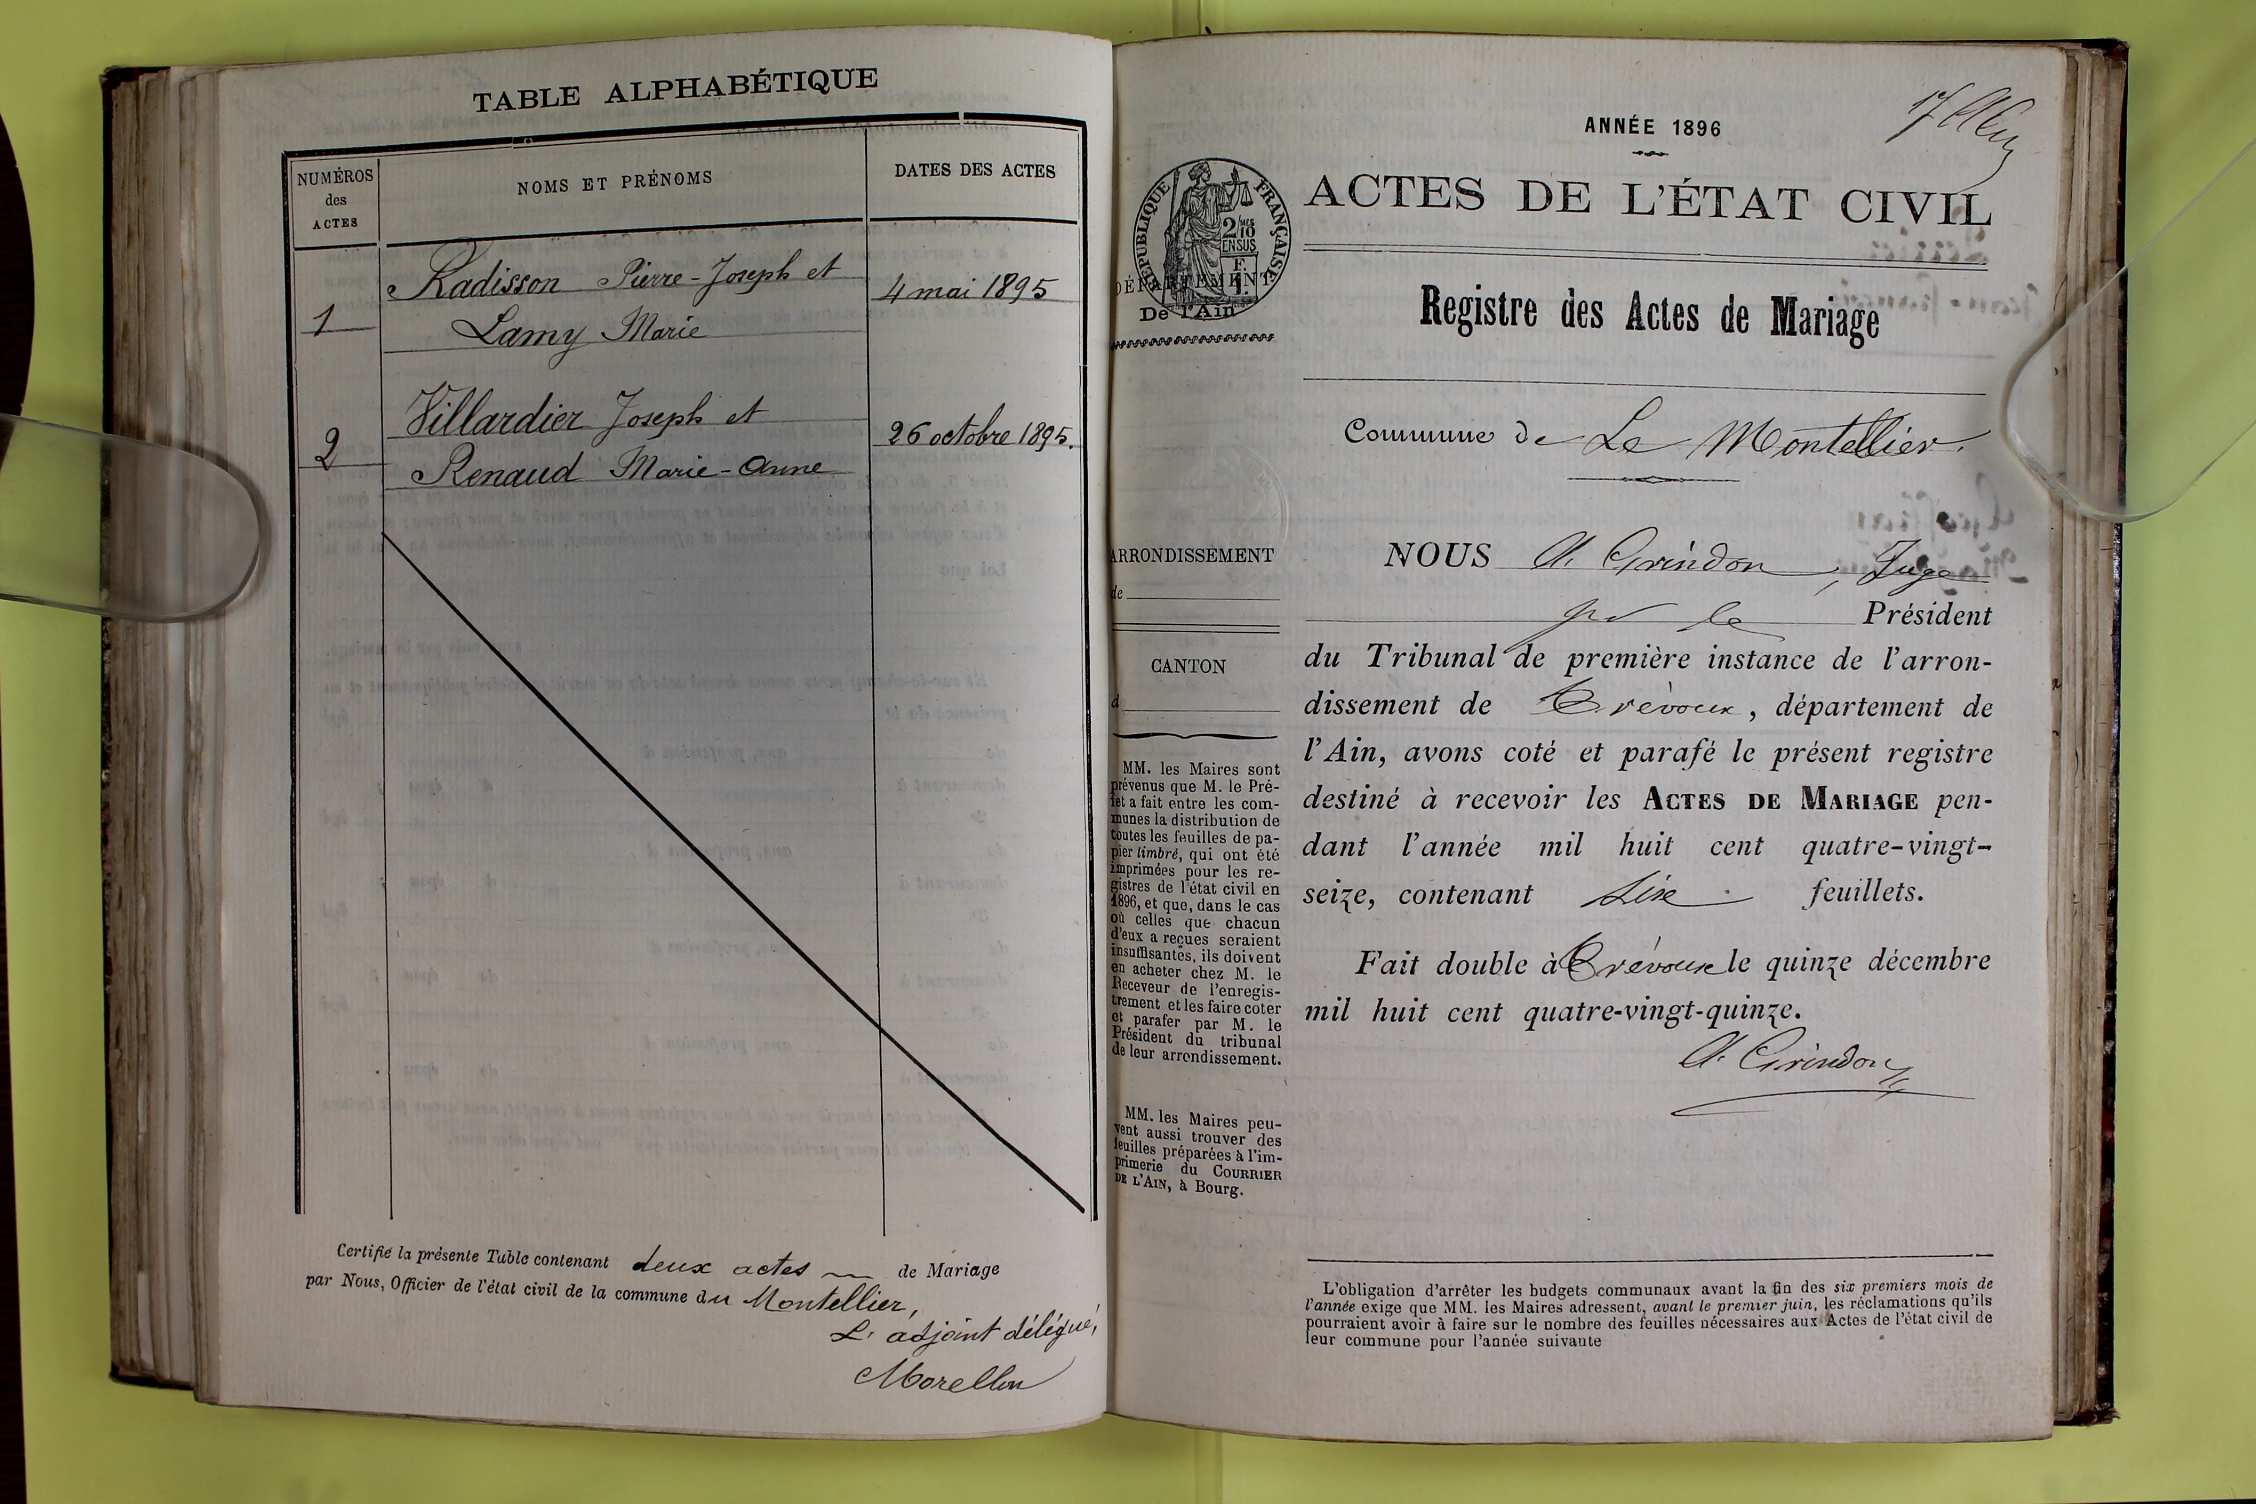 TABLE ALPHABÉTIQUE
NUMÉROS
des
ACTES
NOMS ET PRÉNOMS
DATES DES ACTES
1
Radisson Pierre-Joseph et
Lamy Marie
4 mai 1895
2
Villardier Joseph et
Renaud Marie-Anne
26 octobre 1895.
Certifié la présente Table contenant deux actes de Mariage
par Nous, Officier de l'état civil de la commune du Montellier,
L'adjoint délégué,
Morellon
ANNÉE 1896
ACTES DE L'ÉTAT CIVIL
RÉPUBLIQUE FRANÇAISE
2/10
EN SUS
DÉPARTEMENT
De l'Ain
Registre des Actes de Mariage
Commune de Le Montellier.
ARRONDISSEMENT
de
CANTON
d
MM. les Maires sont
prévenus que M. le Pré-
fet a fait entre les com-
munes la distribution de
toutes les feuilles de pa-
pier timbré, qui ont été
imprimées pour les re-
gistres de l'état civil en
1896, et que, dans le cas
où celles que chacun
d'eux a reçues seraient
insuffisantes, ils doivent
en acheter chez M. le
Receveur de l'enregis-
trement et les faire coter
et parafer par M. le
Président du tribunal
de leur arrondissement.
MM. les Maires peu-
vent aussi trouver des
feuilles préparées à l'im-
primerie du COURRIER
DE L'AIN, à Bourg.
NOUS A. Grindon, Juge
pr le Président
du Tribunal de première instance de l'arron-
dissement de Trévoux, département de
l'Ain, avons coté et parafé le présent registre
destiné à recevoir les ACTES DE MARIAGE pen-
dant l'année mil huit cent quatre-vingt-
seize, contenant six feuillets.
Fait double à Trévoux le quinze décembre
mil huit cent quatre-vingt-quinze.
A. Grindon
L'obligation d'arrêter les budgets communaux avant la fin des six premiers mois de
l'année exige que MM. les Maires adressent, avant le premier juin, les réclamations qu'ils
pourraient avoir à faire sur le nombre des feuilles nécessaires aux Actes de l'état civil de
leur commune pour l'année suivante